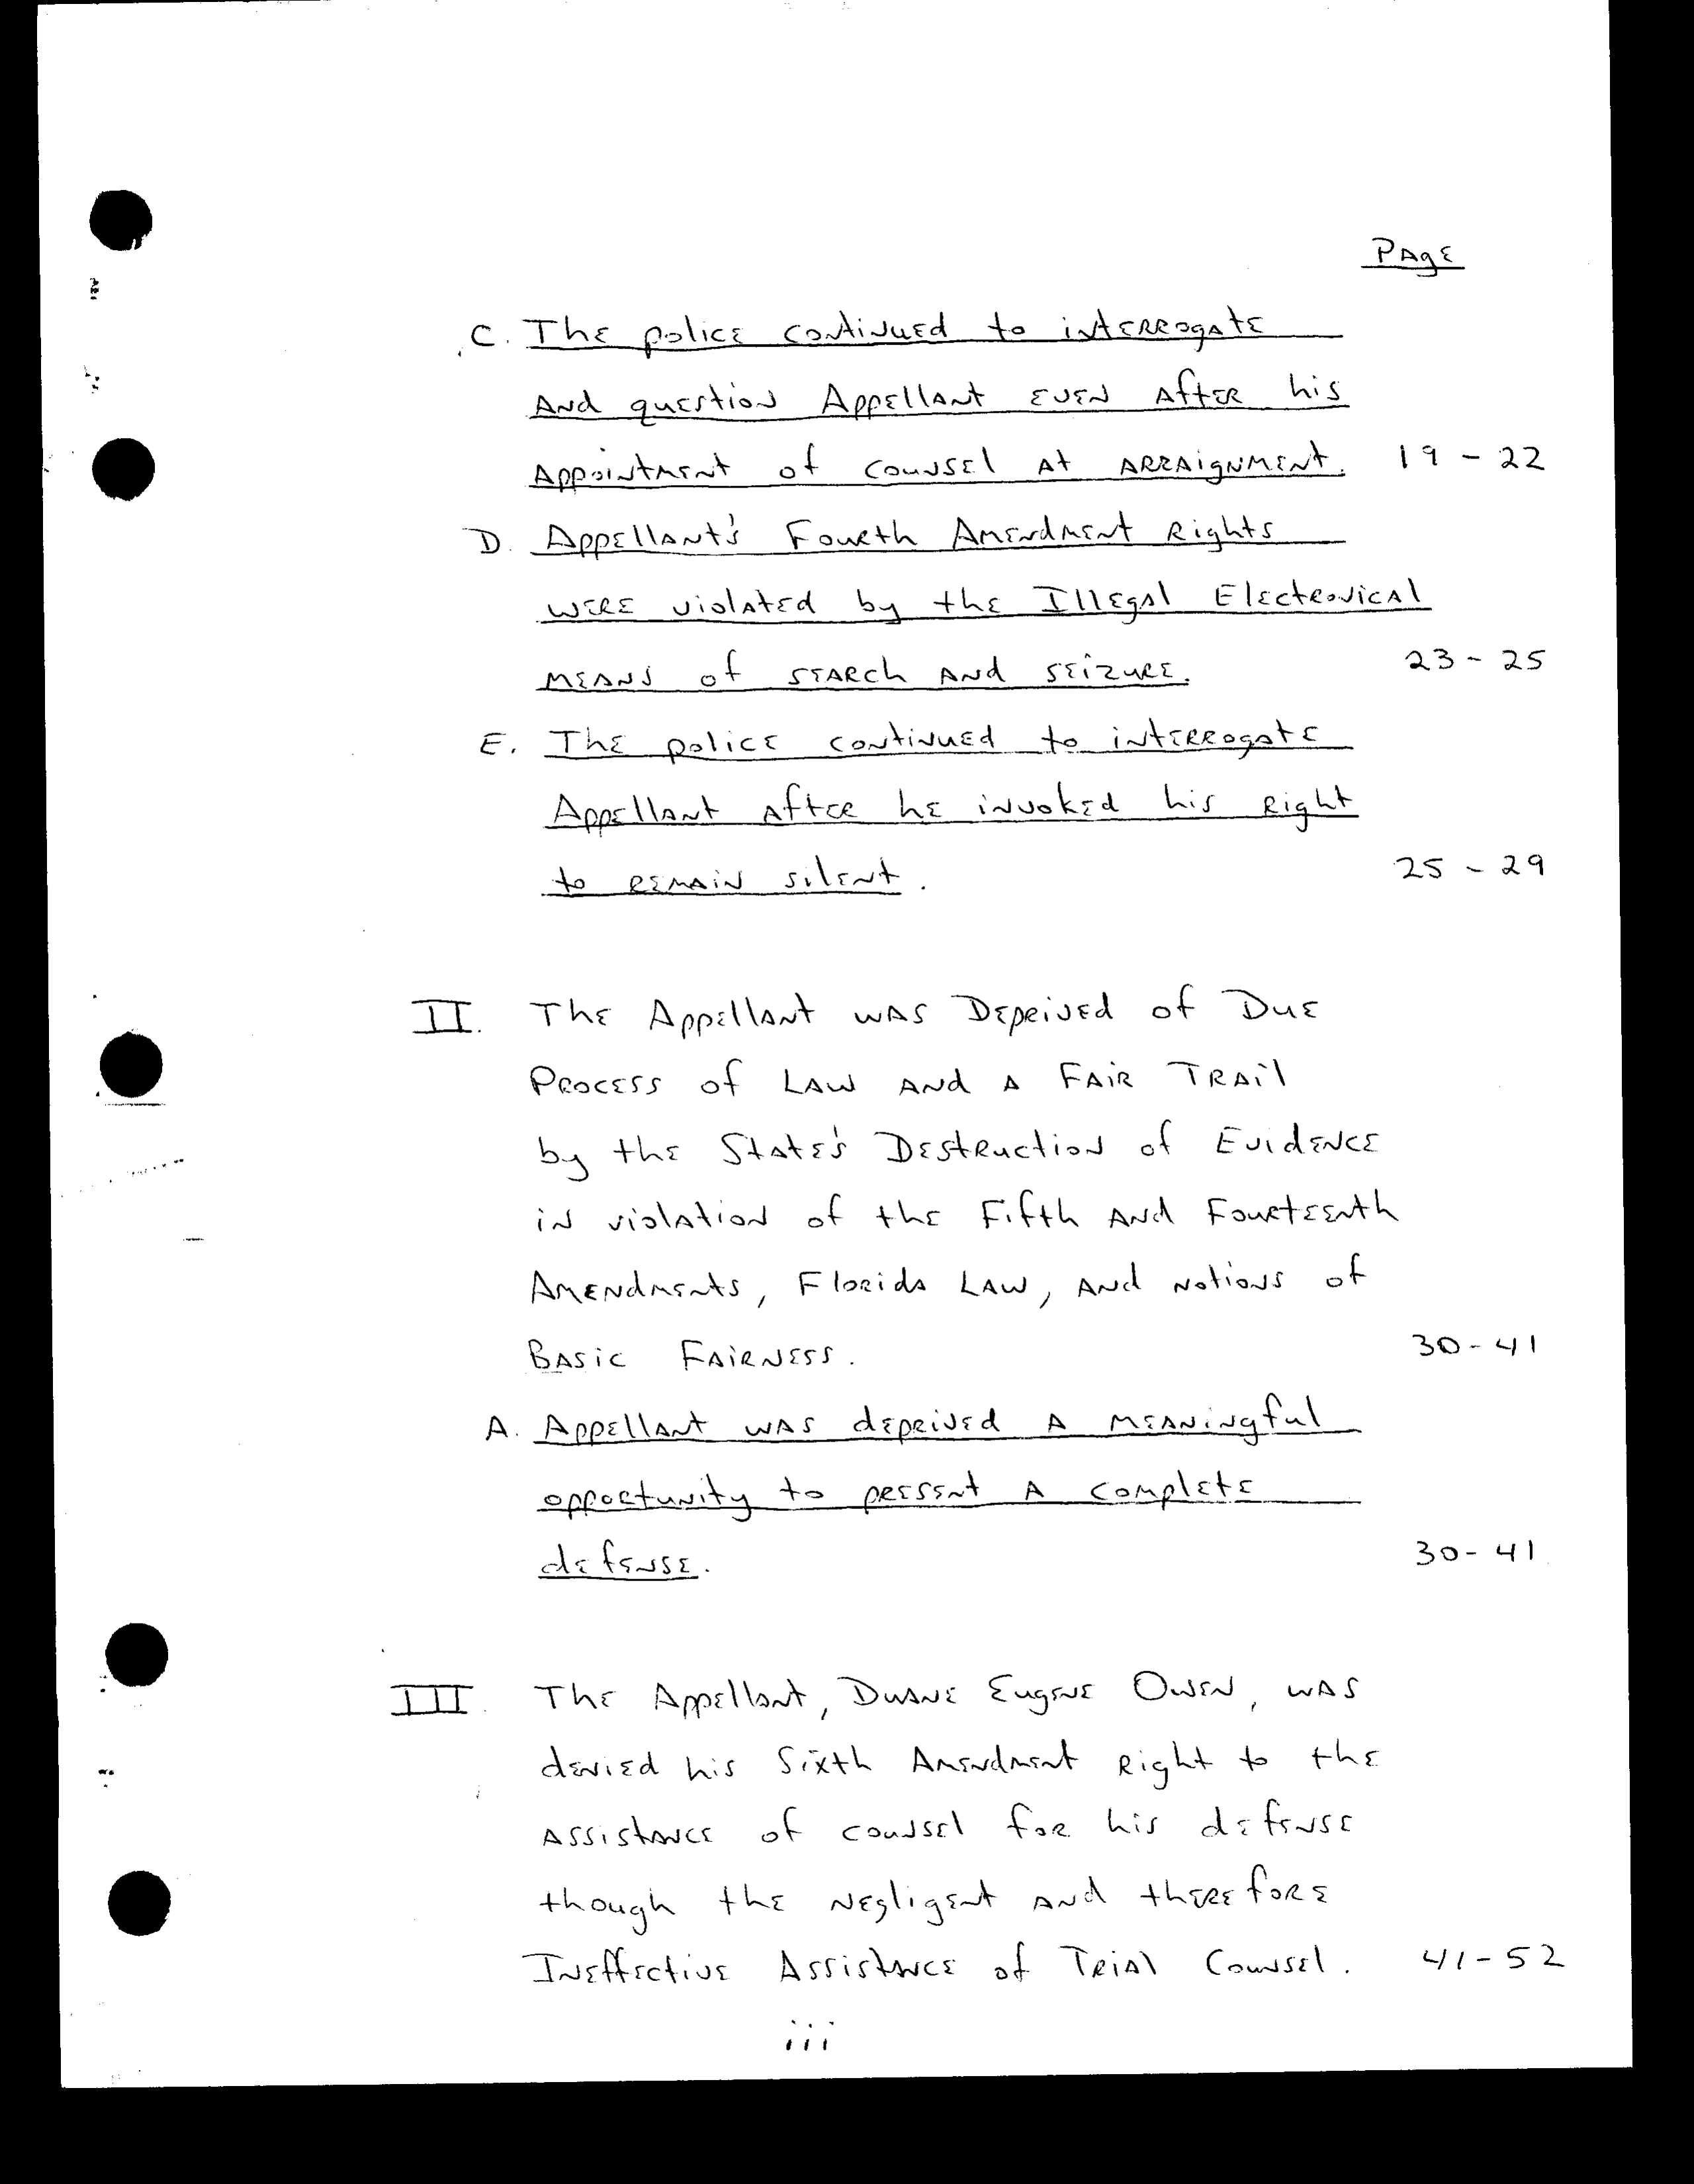 PAGE
C. The police continued to interrogate
and question Appellant even after his
appointment of counsel at arraignment. 19 - 22
D. Appellant's Fourth Amendment Rights
were violated by the Illegal Electronical
means of search and seizure. 23 - 25
E. The police continued to interrogate
Appellant after he invoked his right
to remain silent. 25 - 29
II. The Appellant was Deprived of Due
Process of Law and a Fair Trail
by the State's Destruction of Evidence
in violation of the Fifth and Fourteenth
Amendments, Florida Law, and notions of
Basic Fairness. 30-41
A. Appellant was deprived a meaningful
opportunity to present a complete
defense. 30-41
III. The Appellant, Duane Eugene Owen, was
denied his Sixth Amendment Right to the
assistance of counsel for his defense
though the negligent and therefore
Ineffective Assistance of Trial Counsel. 41-52
iii